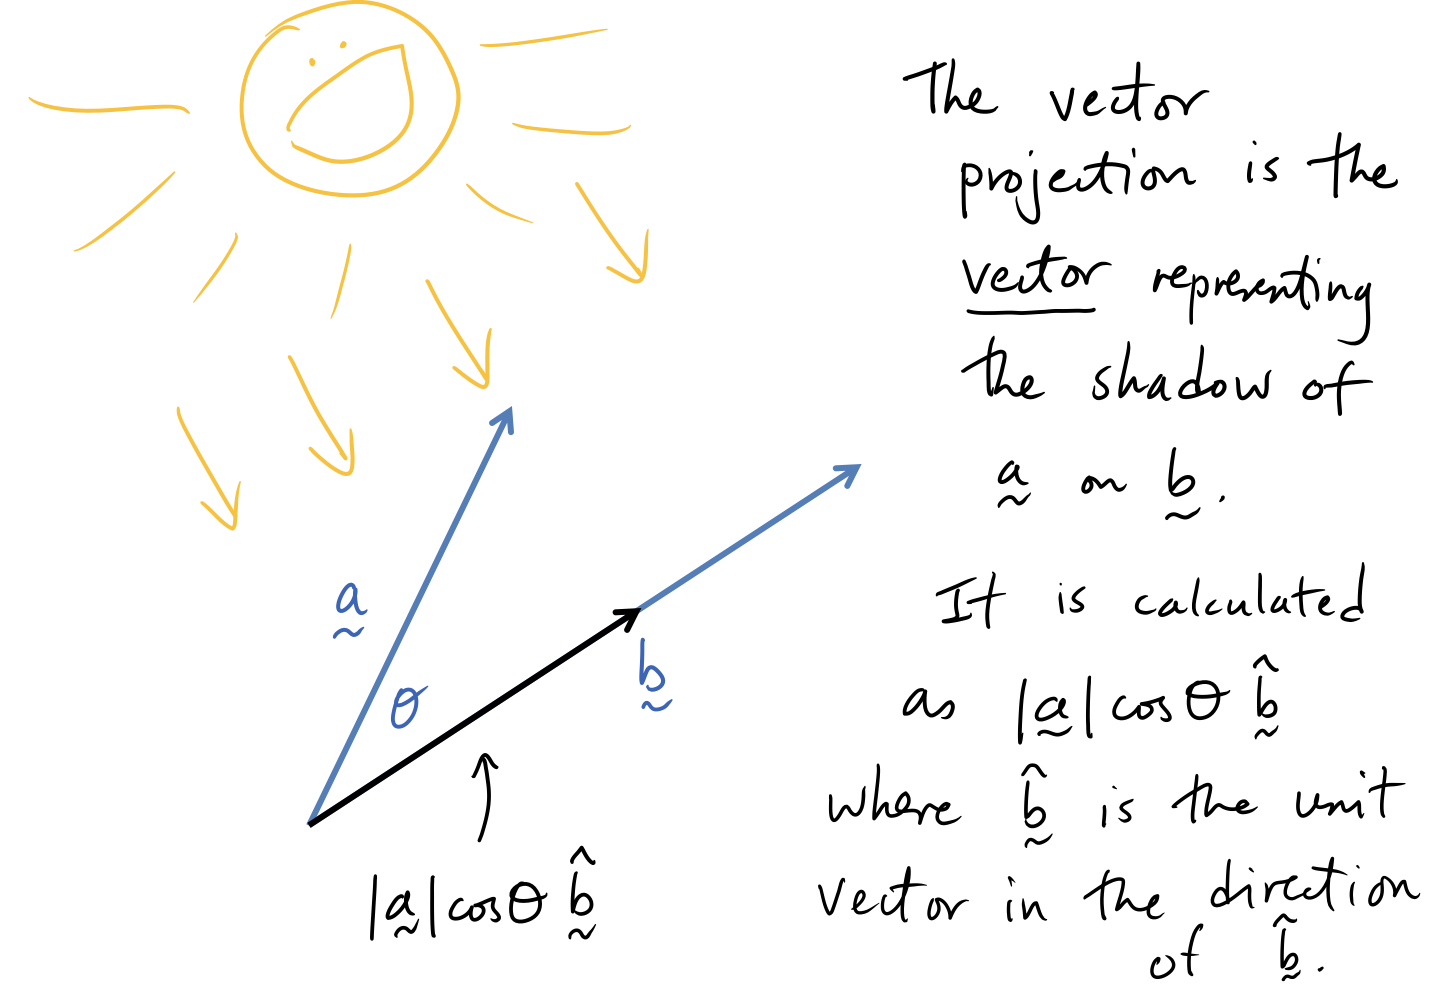 The vector
projection is the
vector representing
the shadow of
a̰ on b̰.
It is calculated
as |a̰| cosθ b̰̂
where b̰̂ is the unit
vector in the direction
of b̰̂.
a̰
θ
b̰
|a̰| cosθ b̰̂